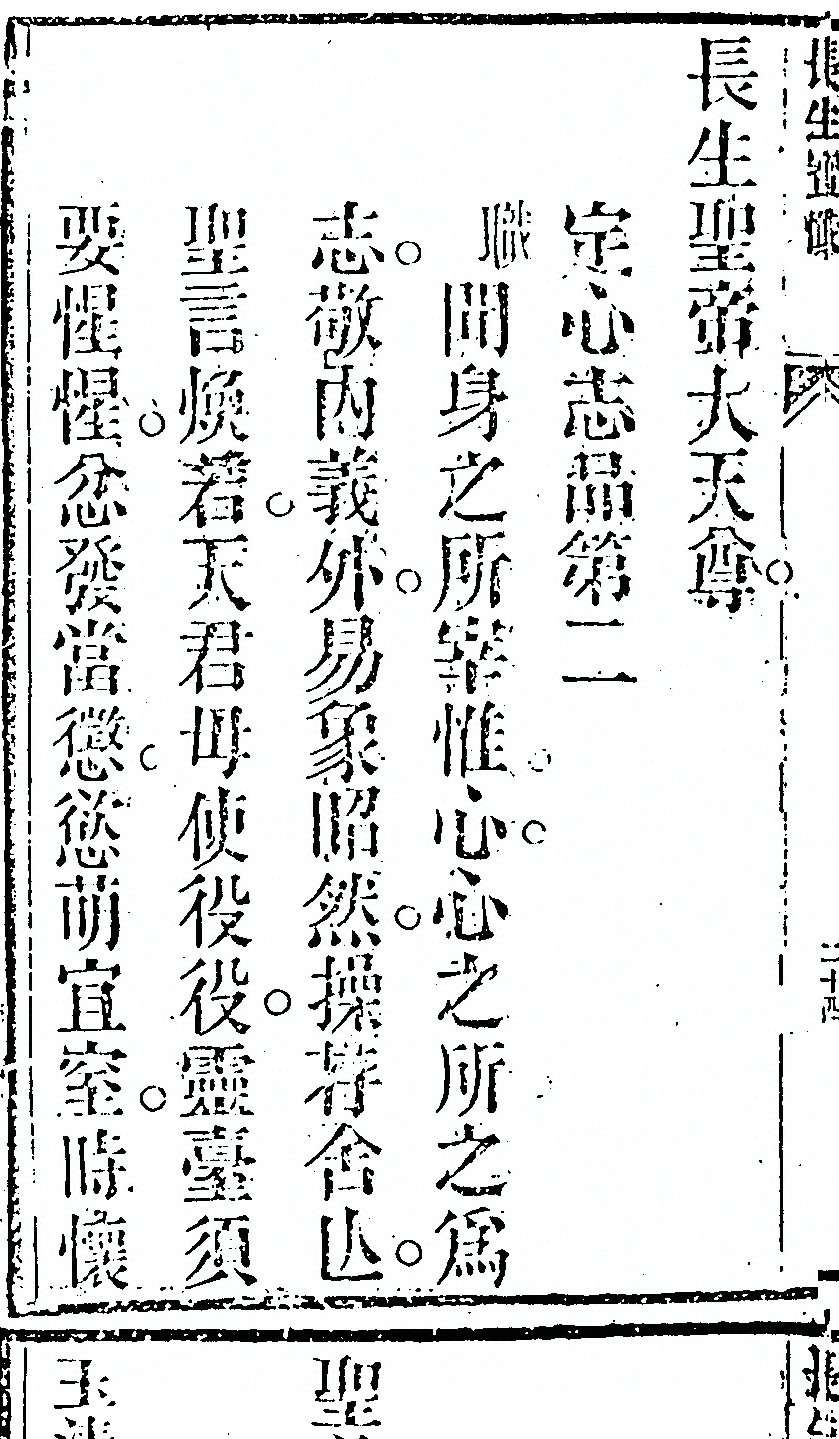 長生寶懺
二十四
長生聖帝大天尊
定心志品第二
職聞身之所宰惟心心之所之爲
志敬內義外易象昭然操舍亾
聖言煥若天君毋使役役靈臺須
要惺惺忿發當懲慾萌宜窒時懷
長生
聖
玉